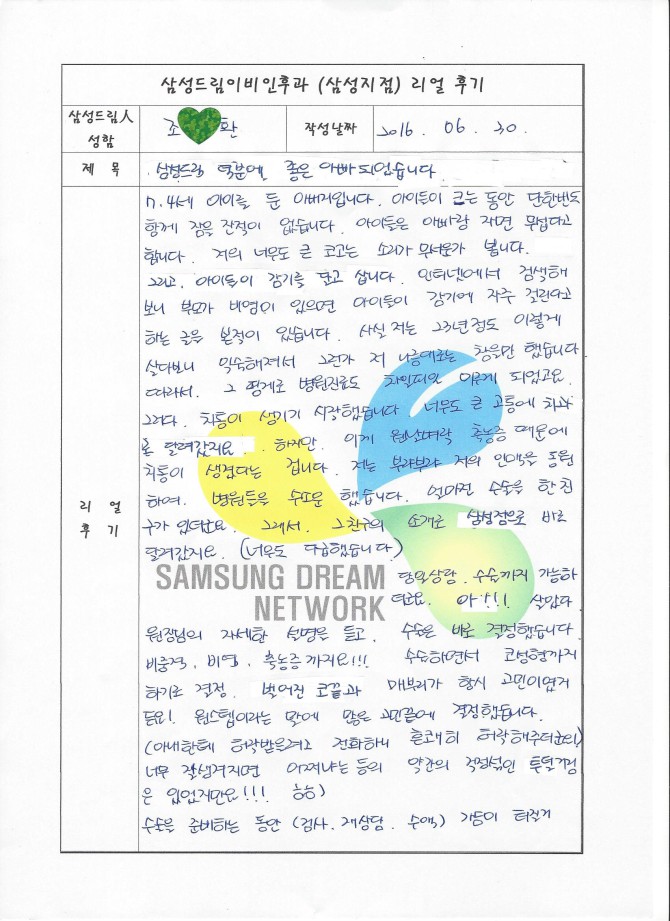 삼성드림이비인후과 (삼성지점) 리얼 후기
삼성드림人 성함
조 환
작성날짜
2016. 06. 30.
제 목
삼성드림 덕분에 좋은 아빠 되었습니다
리 얼 후 기
7. 4세 아이를 둔 아버지입니다. 아이들이 크는 동안 단한번도
함께 잠을 잔적이 없습니다. 아이들은 아빠랑 자면 무섭다고
합니다. 저의 너무도 큰 코고는 소리가 무서운가 봅니다.
그리고, 아이들이 감기를 달고 삽니다. 인터넷에서 검색해
보니 부모가 비염이 있으면 아이들이 감기에 자주 걸린다고
하는 글을 본적이 있습니다. 사실 저는 23년정도 이렇게
살다보니 익숙해져서 그런가 저 나름대로는 참을만 했습니다
따라서. 그 핑계로 병원진료도 차일피일 미루게 되었고요.
그러다. 치통이 생기기 시작했습니다 너무도 큰 고통에 치과
로 달려갔지요. 하지만. 이게 왠날벼락 축농증 때문에
치통이 생겼다는 겁니다. 저는 부랴부랴 저의 인맥을 동원
하여. 병원들을 수소문 했습니다. 얼마전 수술을 한 친
구가 있더군요. 그래서. 그친구의 소개로 삼성점으로 바로
달려갔지요. (너무도 다급했습니다)
SAMSUNG DREAM
NETWORK
당일상담. 수술까지 가능하
더군요. 아!!! 살았다
원장님의 자세한 설명을 듣고. 수술은 바로 결정했습니다
비중격, 비염, 축농증까지요!!! 수술하면서 코성형까지
하기로 결정. 벌어진 코끝과 매부리가 항시 고민이였거
든요! 원스텝이라는 말에 많은 고민끝에 결정했습니다.
(아내한테 허락받을려고 전화하니 흔쾌히 허락해주더군요!
너무 잘생겨지면 어쩌냐는 등의 약간의 걱정섞인 투덜거림
은 있었지만요!!! ㅎㅎ)
수술을 준비하는 동안 (검사. 재상담. 수액) 가슴이 터질거